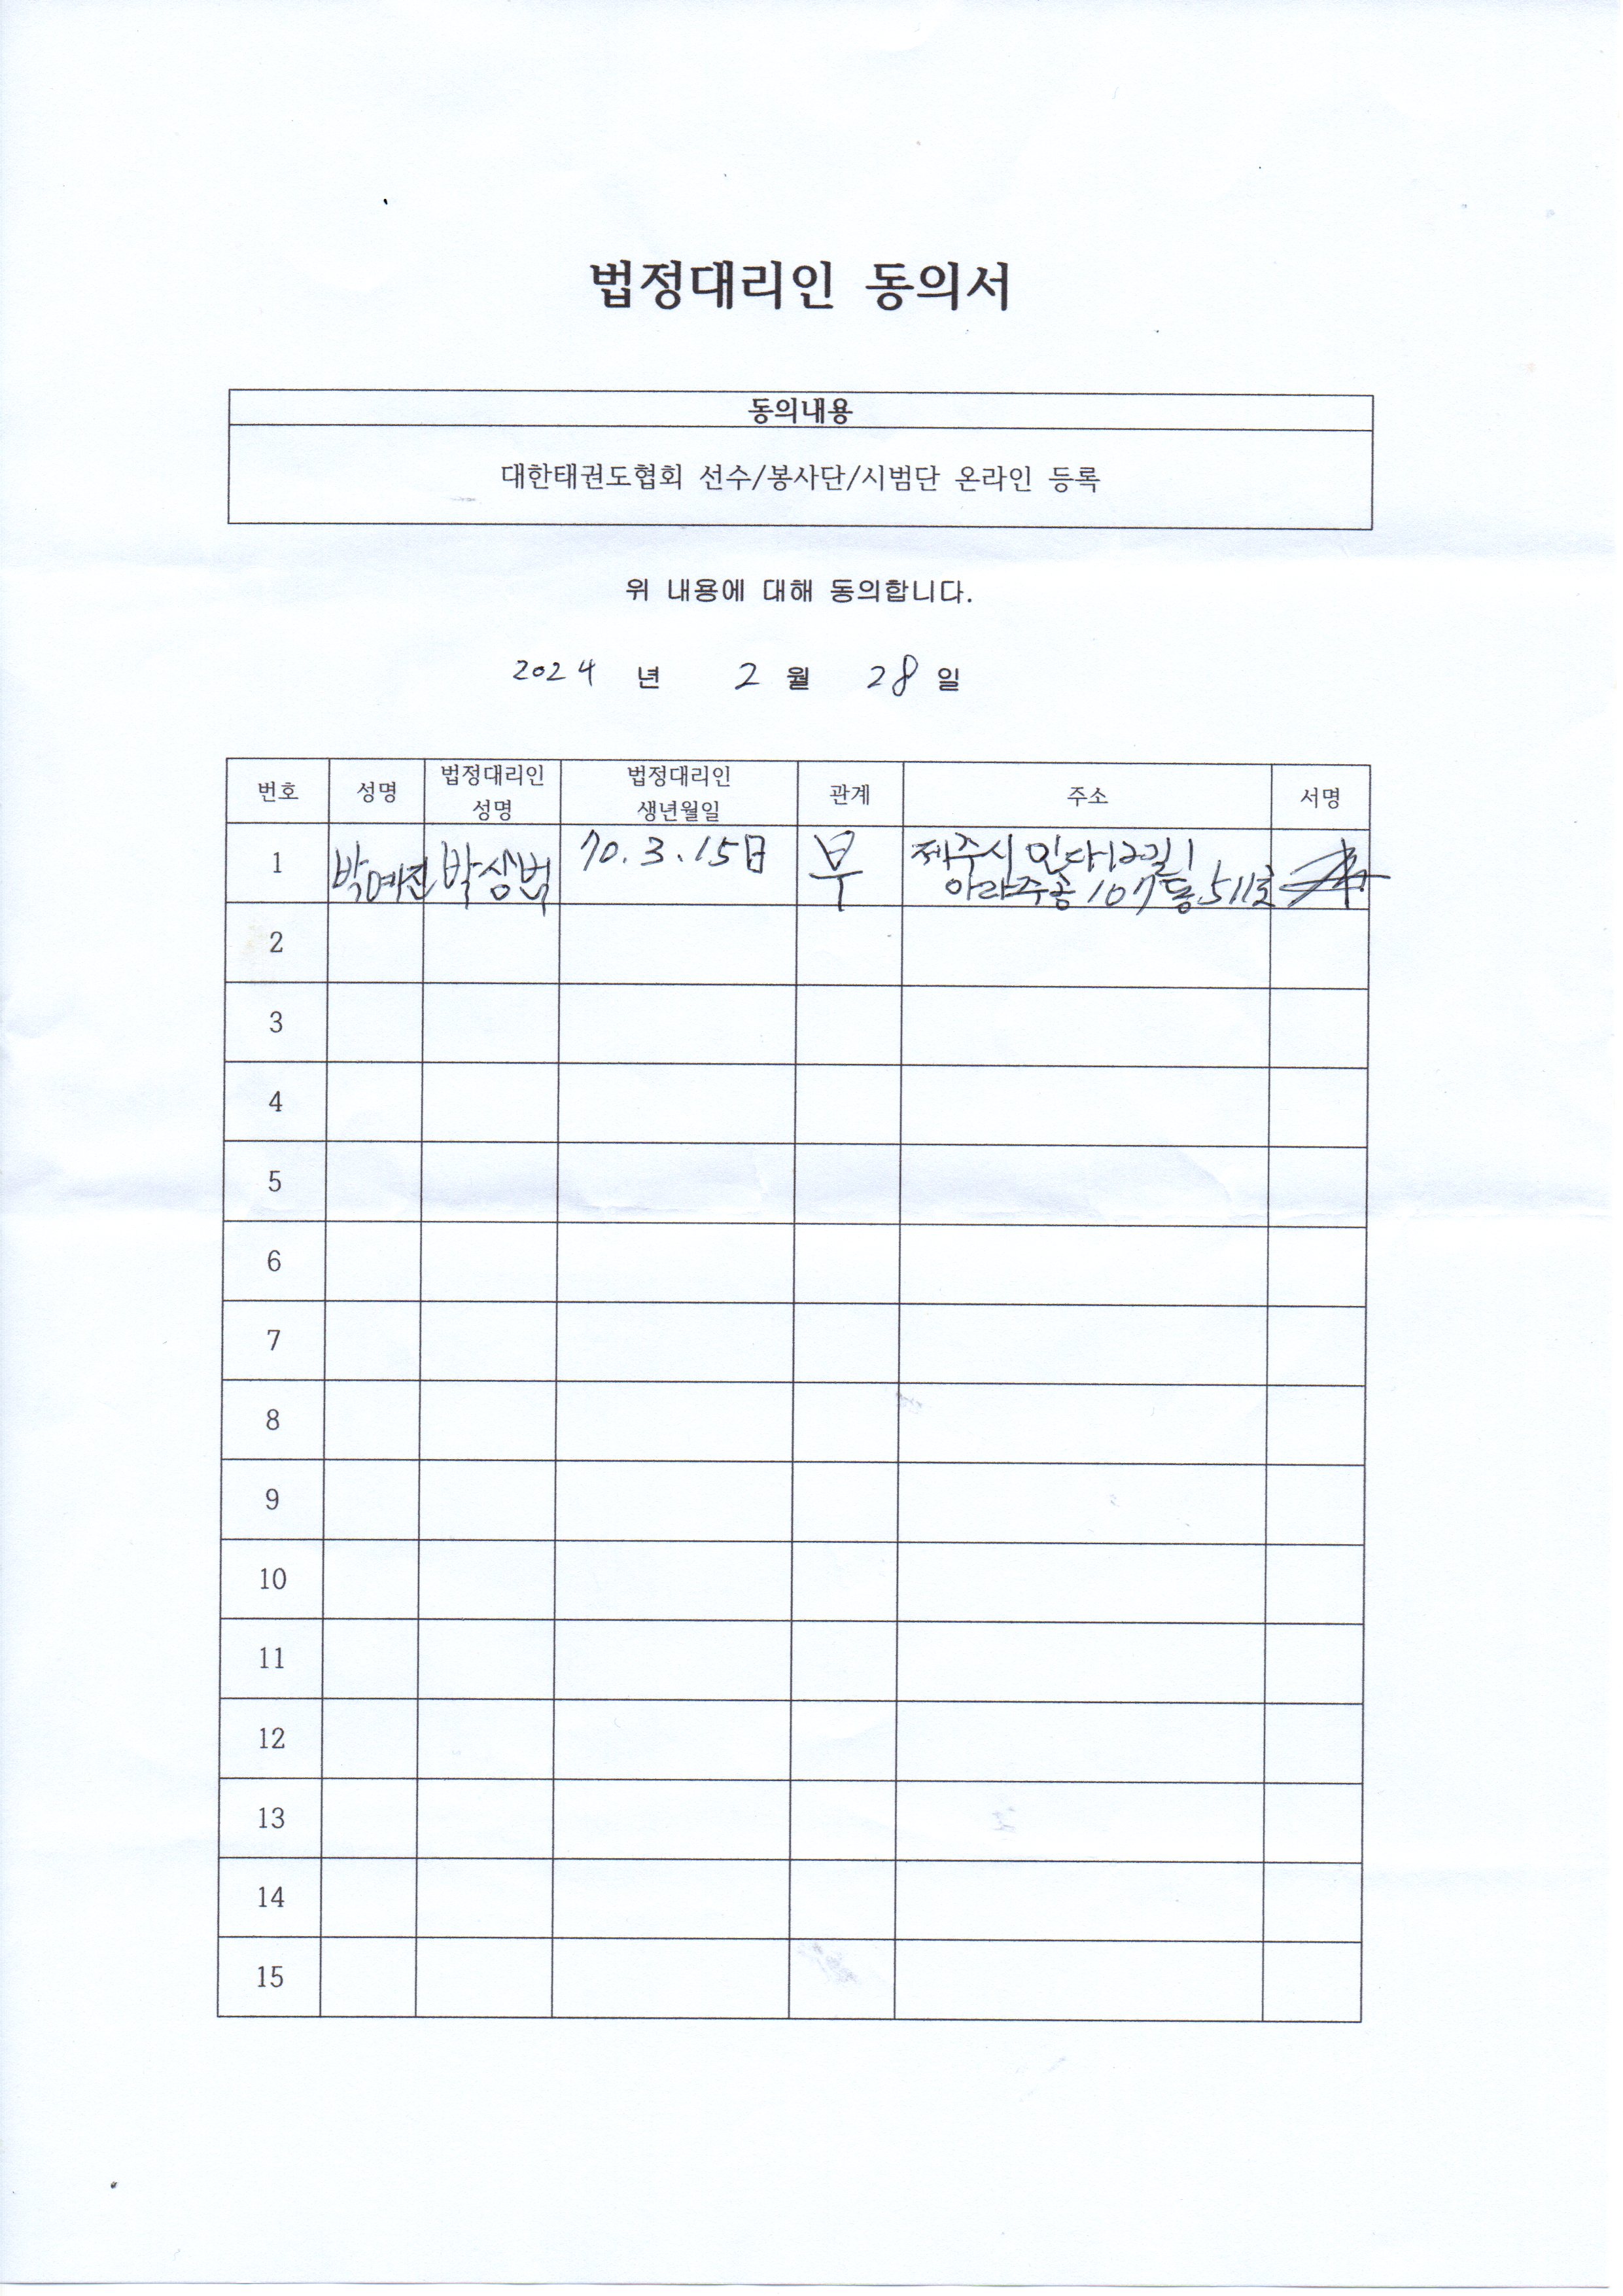 법정대리인 동의서
동의내용
대한태권도협회 선수/봉사단/시범단 온라인 등록
위 내용에 대해 동의합니다.
2024 년 2 월 28 일
번호 성명 법정대리인 성명 법정대리인 생년월일 관계 주소 서명
1 박예진 박상범 70.3.15日 부 제주시 인다12길 1
아라주공 107동 511호
2
3
4
5
6
7
8
9
10
11
12
13
14
15